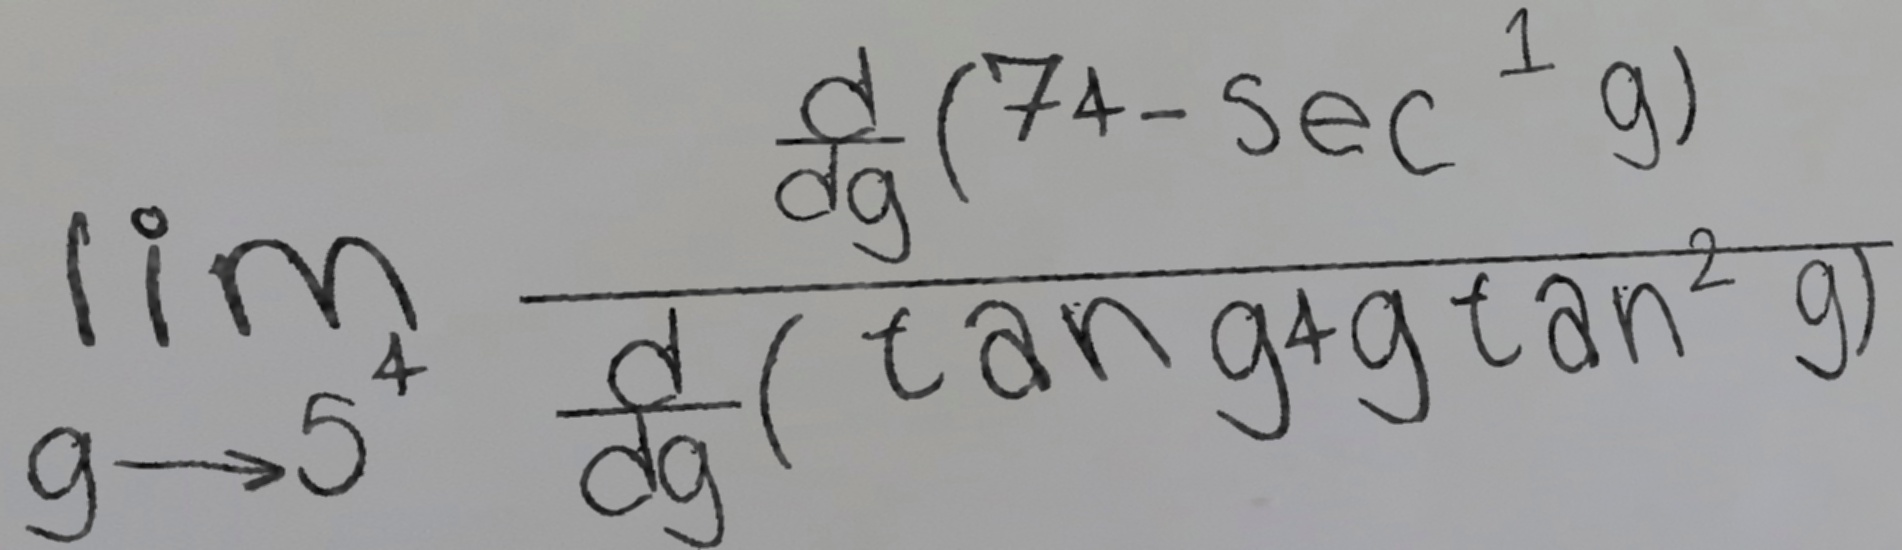 \lim_{g \to 5^4} \frac{\frac{d}{dg}(74 - \sec^1 g)}{\frac{d}{dg}(\tan g 4 g \tan^2 g)}